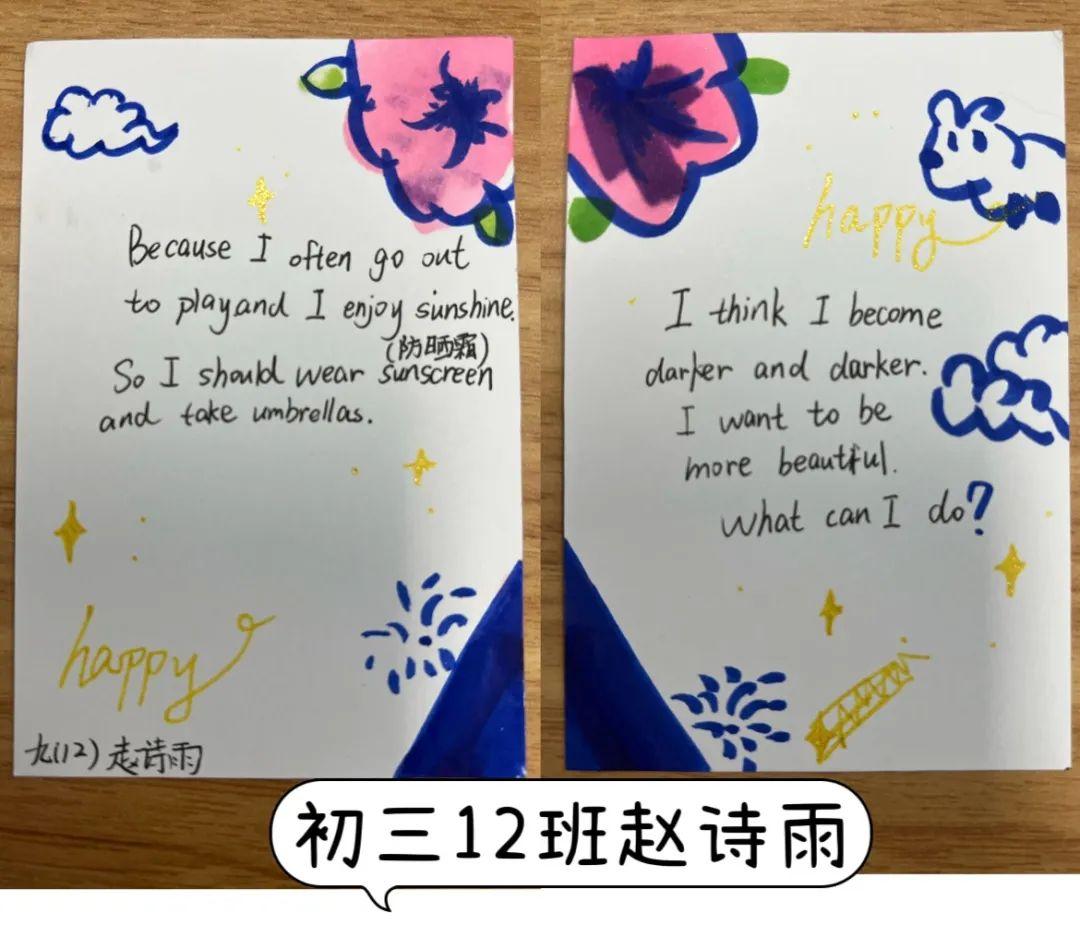 Because I often go out
to play and I enjoy sunshine.
(防晒霜)
So I should wear sunscreen
and take umbrellas.
happy
九(12) 赵诗雨
happy
I think I become
darker and darker.
I want to be
more beautiful.
What can I do?
初三12班赵诗雨